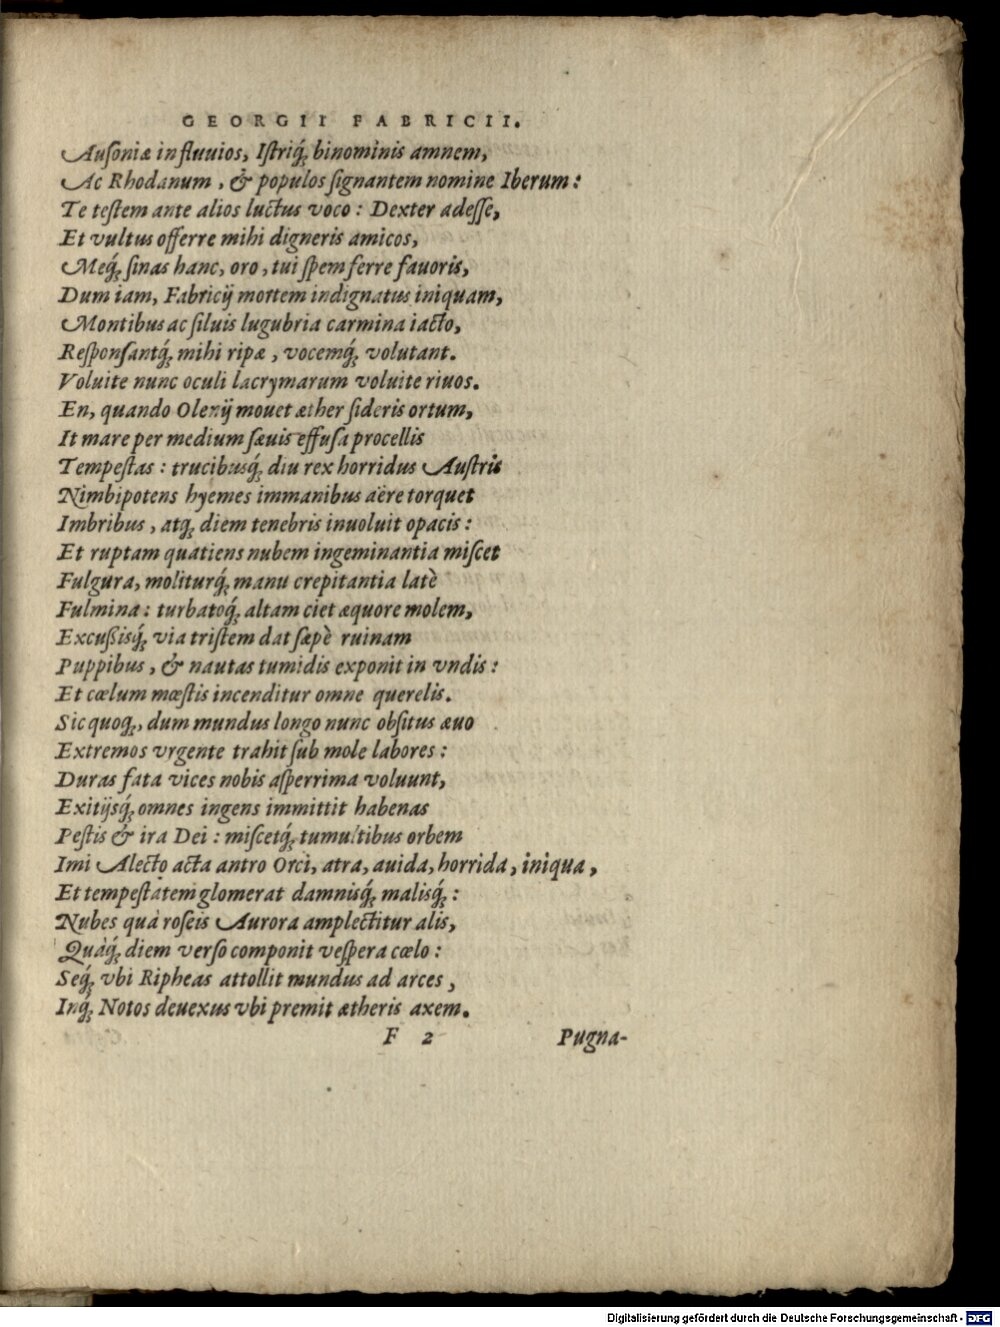 GEORGII FABRICII.
Auſoniæ in fluuios, Iſtriq́; binominis amnem,
Ac Rhodanum, & populos ſignantem nomine Iberum:
Te teſtem ante alios luctus voco: Dexter adeſſe,
Et vultus offerre mihi digneris amicos,
Meq́; ſinas hanc, oro, tui ſpem ferre fauoris,
Dum iam, Fabricij mortem indignatus iniquam,
Montibus ac ſiluis lugubria carmina iacto,
Reſponſantq́; mihi ripæ, vocemq́; volutant.
Voluite nunc oculi lacrymarum voluite riuos.
En, quando Olenij mouet æther ſideris ortum,
It mare per medium ſæuis effuſa procellis
Tempeſtas: trucibusq́; diu rex horridus Auſtris
Nimbipotens hyemes immanibus aëre torquet
Imbribus, atq; diem tenebris inuoluit opacis:
Et ruptam quatiens nubem ingeminantia miſcet
Fulgura, moliturq́; manu crepitantia latè
Fulmina: turbatoq́; altam ciet æquore molem,
Excußisq́; via triſtem dat ſæpè ruinam
Puppibus, & nautas tumidis exponit in vndis:
Et cœlum mœſtis incenditur omne querelis.
Sic quoq;, dum mundus longo nunc obſitus æuo
Extremos vrgente trahit ſub mole labores:
Duras fata vices nobis aſperrima voluunt,
Exitijsq́; omnes ingens immittit habenas
Peſtis & ira Dei: miſcetq́; tumultibus orbem
Imi Alecto acta antro Orci, atra, auida, horrida, iniqua,
Et tempeſtatem glomerat damnisq́; malisq́;:
Nubes quà roſeis Aurora amplectitur alis,
Quàq́; diem verſo componit veſpera cœlo:
Seq́; vbi Ripheas attollit mundus ad arces,
Inq́; Notos deuexus vbi premit ætheris axem.
F 2 Pugna-
Digitalisierung gefördert durch die Deutsche Forschungsgemeinschaft - DFG